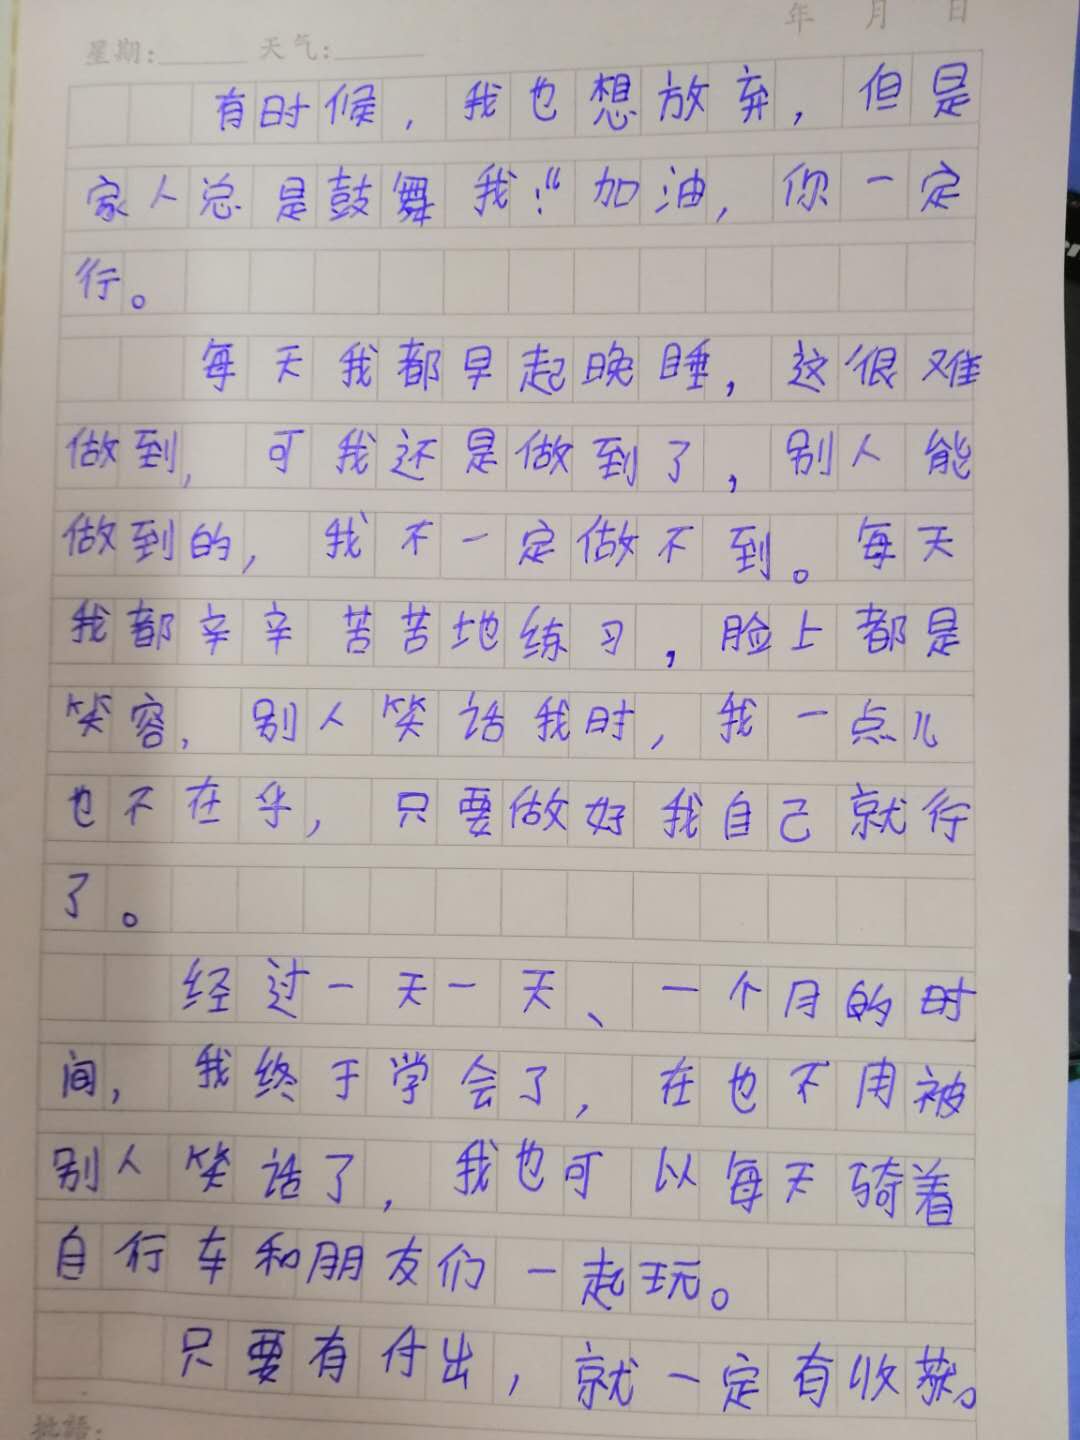 年 月 日
星期: 天气:
有时候，我也想放弃，但是
家人总是鼓舞我:“加油，你一定
行。
每天我都早起晚睡，这很难
做到，可我还是做到了，别人能
做到的，我不一定做不到。每天
我都辛辛苦苦地练习，脸上都是
笑容，别人笑话我时，我一点儿
也不在乎，只要做好我自己就行
了。
经过一天一天、一个月的时
间，我终于学会了，在也不用被
别人笑话了，我也可以每天骑着
自行车和朋友们一起玩。
只要有付出，就一定有收获。
批语: